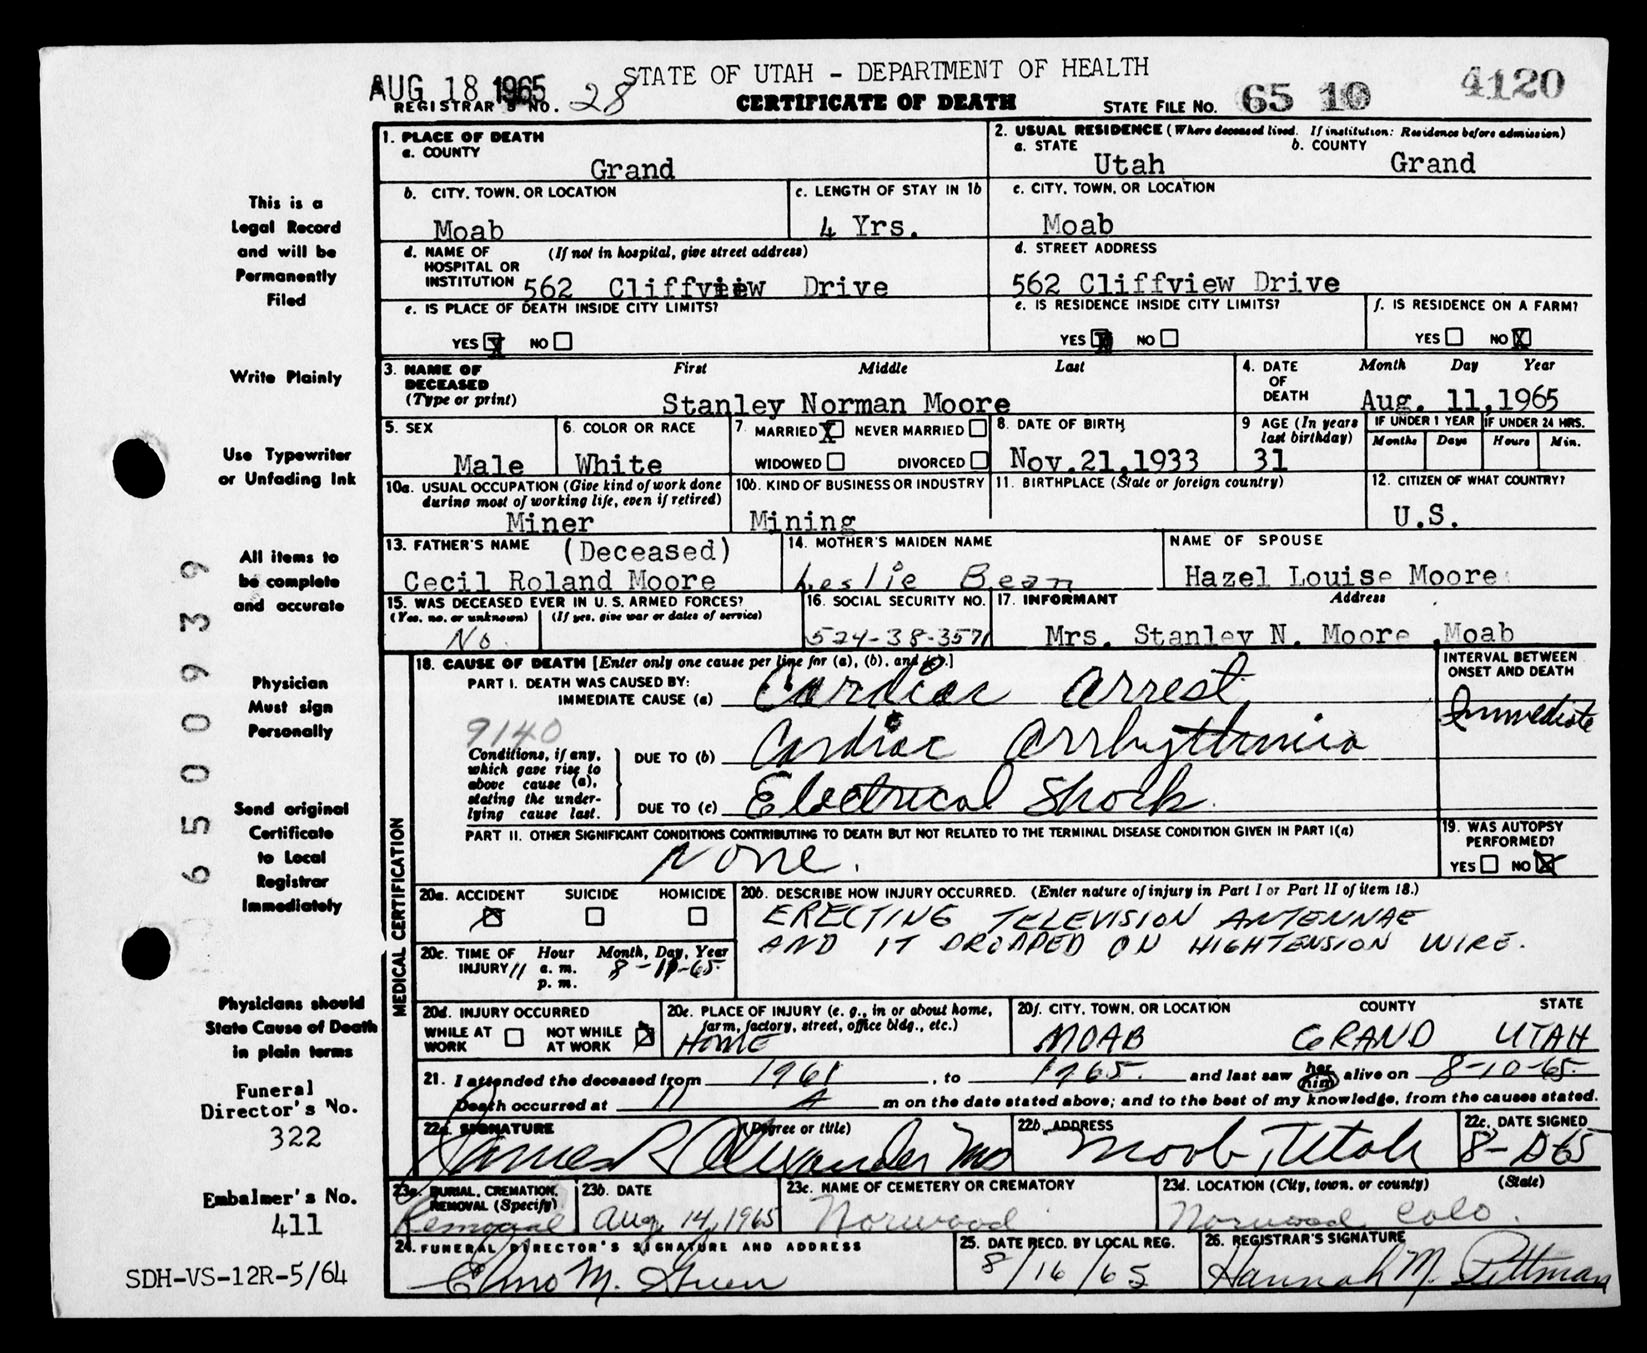 AUG 18 1965
STATE OF UTAH - DEPARTMENT OF HEALTH
REGISTRAR'S NO. 28
CERTIFICATE OF DEATH
STATE FILE NO. 65 10 4120
This is a
Legal Record
and will be
Permanently
Filed
Write Plainly
Use Typewriter
or Unfading Ink
All items to
be complete
and accurate
Physician
Must sign
Personally
Send original
Certificate
to Local
Registrar
Immediately
Physicians should
State Cause of Death
in plain terms
Funeral
Director's No.
322
Embalmer's No.
411
SDH-VS-12R-5/64
6500939
1. PLACE OF DEATH
a. COUNTY
Grand
2. USUAL RESIDENCE (Where deceased lived. If institution: Residence before admission)
a. STATE b. COUNTY
Utah Grand
b. CITY, TOWN, OR LOCATION
Moab
c. LENGTH OF STAY IN 1b
4 Yrs.
c. CITY, TOWN, OR LOCATION
Moab
d. NAME OF (If not in hospital, give street address)
HOSPITAL OR
INSTITUTION 562 Cliffview Drive
d. STREET ADDRESS
562 Cliffview Drive
e. IS PLACE OF DEATH INSIDE CITY LIMITS?
YES X NO
e. IS RESIDENCE INSIDE CITY LIMITS?
YES X NO
f. IS RESIDENCE ON A FARM?
YES NO X
3. NAME OF First Middle Last
DECEASED
(Type or print)
Stanley Norman Moore
4. DATE Month Day Year
OF
DEATH Aug. 11,1965
5. SEX
Male
6. COLOR OR RACE
White
7. MARRIED X NEVER MARRIED
WIDOWED DIVORCED
8. DATE OF BIRTH
Nov.21,1933
9. AGE (In years
last birthday)
31
IF UNDER 1 YEAR IF UNDER 24 HRS.
Months Days Hours Min.
10a. USUAL OCCUPATION (Give kind of work done
during most of working life, even if retired)
Miner
10b. KIND OF BUSINESS OR INDUSTRY
Mining
11. BIRTHPLACE (State or foreign country)
12. CITIZEN OF WHAT COUNTRY?
U.S.
13. FATHER'S NAME (Deceased)
Cecil Roland Moore
14. MOTHER'S MAIDEN NAME
Leslie Bean
NAME OF SPOUSE
Hazel Louise Moore
15. WAS DECEASED EVER IN U.S. ARMED FORCES?
(Yes, no, or unknown) (If yes, give war or dates of service)
No.
16. SOCIAL SECURITY NO.
524-38-3571
17. INFORMANT Address
Mrs. Stanley N. Moore Moab
MEDICAL CERTIFICATION
18. CAUSE OF DEATH [Enter only one cause per line for (a), (b), and (c).]
PART I. DEATH WAS CAUSED BY:
IMMEDIATE CAUSE (a) Cardiac arrest
9140
Conditions, if any,
which gave rise to
above cause (a),
stating the under-
lying cause last.
DUE TO (b) Cardiac arrhythmia
DUE TO (c) Electrical Shock.
INTERVAL BETWEEN
ONSET AND DEATH
Immediate
PART II. OTHER SIGNIFICANT CONDITIONS CONTRIBUTING TO DEATH BUT NOT RELATED TO THE TERMINAL DISEASE CONDITION GIVEN IN PART I(a)
None.
19. WAS AUTOPSY
PERFORMED?
YES NO X
20a. ACCIDENT SUICIDE HOMICIDE
X
20b. DESCRIBE HOW INJURY OCCURRED. (Enter nature of injury in Part I or Part II of item 18.)
ERECTING TELEVISION ANTENNAE
AND IT DROPPED ON HIGHTENSION WIRE.
20c. TIME OF Hour Month, Day, Year
INJURY 11 a. m. 8-11-65
p. m.
20d. INJURY OCCURRED
WHILE AT NOT WHILE
WORK AT WORK X
20e. PLACE OF INJURY (e. g., in or about home,
farm, factory, street, office bldg., etc.)
HOME
20f. CITY, TOWN, OR LOCATION COUNTY STATE
MOAB GRAND UTAH
21. I attended the deceased from 1961, to 1965. and last saw her him alive on 8-10-65.
Death occurred at 11 A m on the date stated above; and to the best of my knowledge, from the causes stated.
22a. SIGNATURE (Degree or title)
James R Alexander MD
22b. ADDRESS
Moab, Utah
22c. DATE SIGNED
23a. BURIAL, CREMATION,
REMOVAL (Specify)
Removal
23b. DATE
Aug 14, 1965
23c. NAME OF CEMETERY OR CREMATORY
Norwood
23d. LOCATION (City, town, or county) (State)
Norwood Colo.
24. FUNERAL DIRECTOR'S SIGNATURE AND ADDRESS
Elmo M.
25. DATE RECD. BY LOCAL REG.
8/16/65
26. REGISTRAR'S SIGNATURE
Hannah M. Pittman